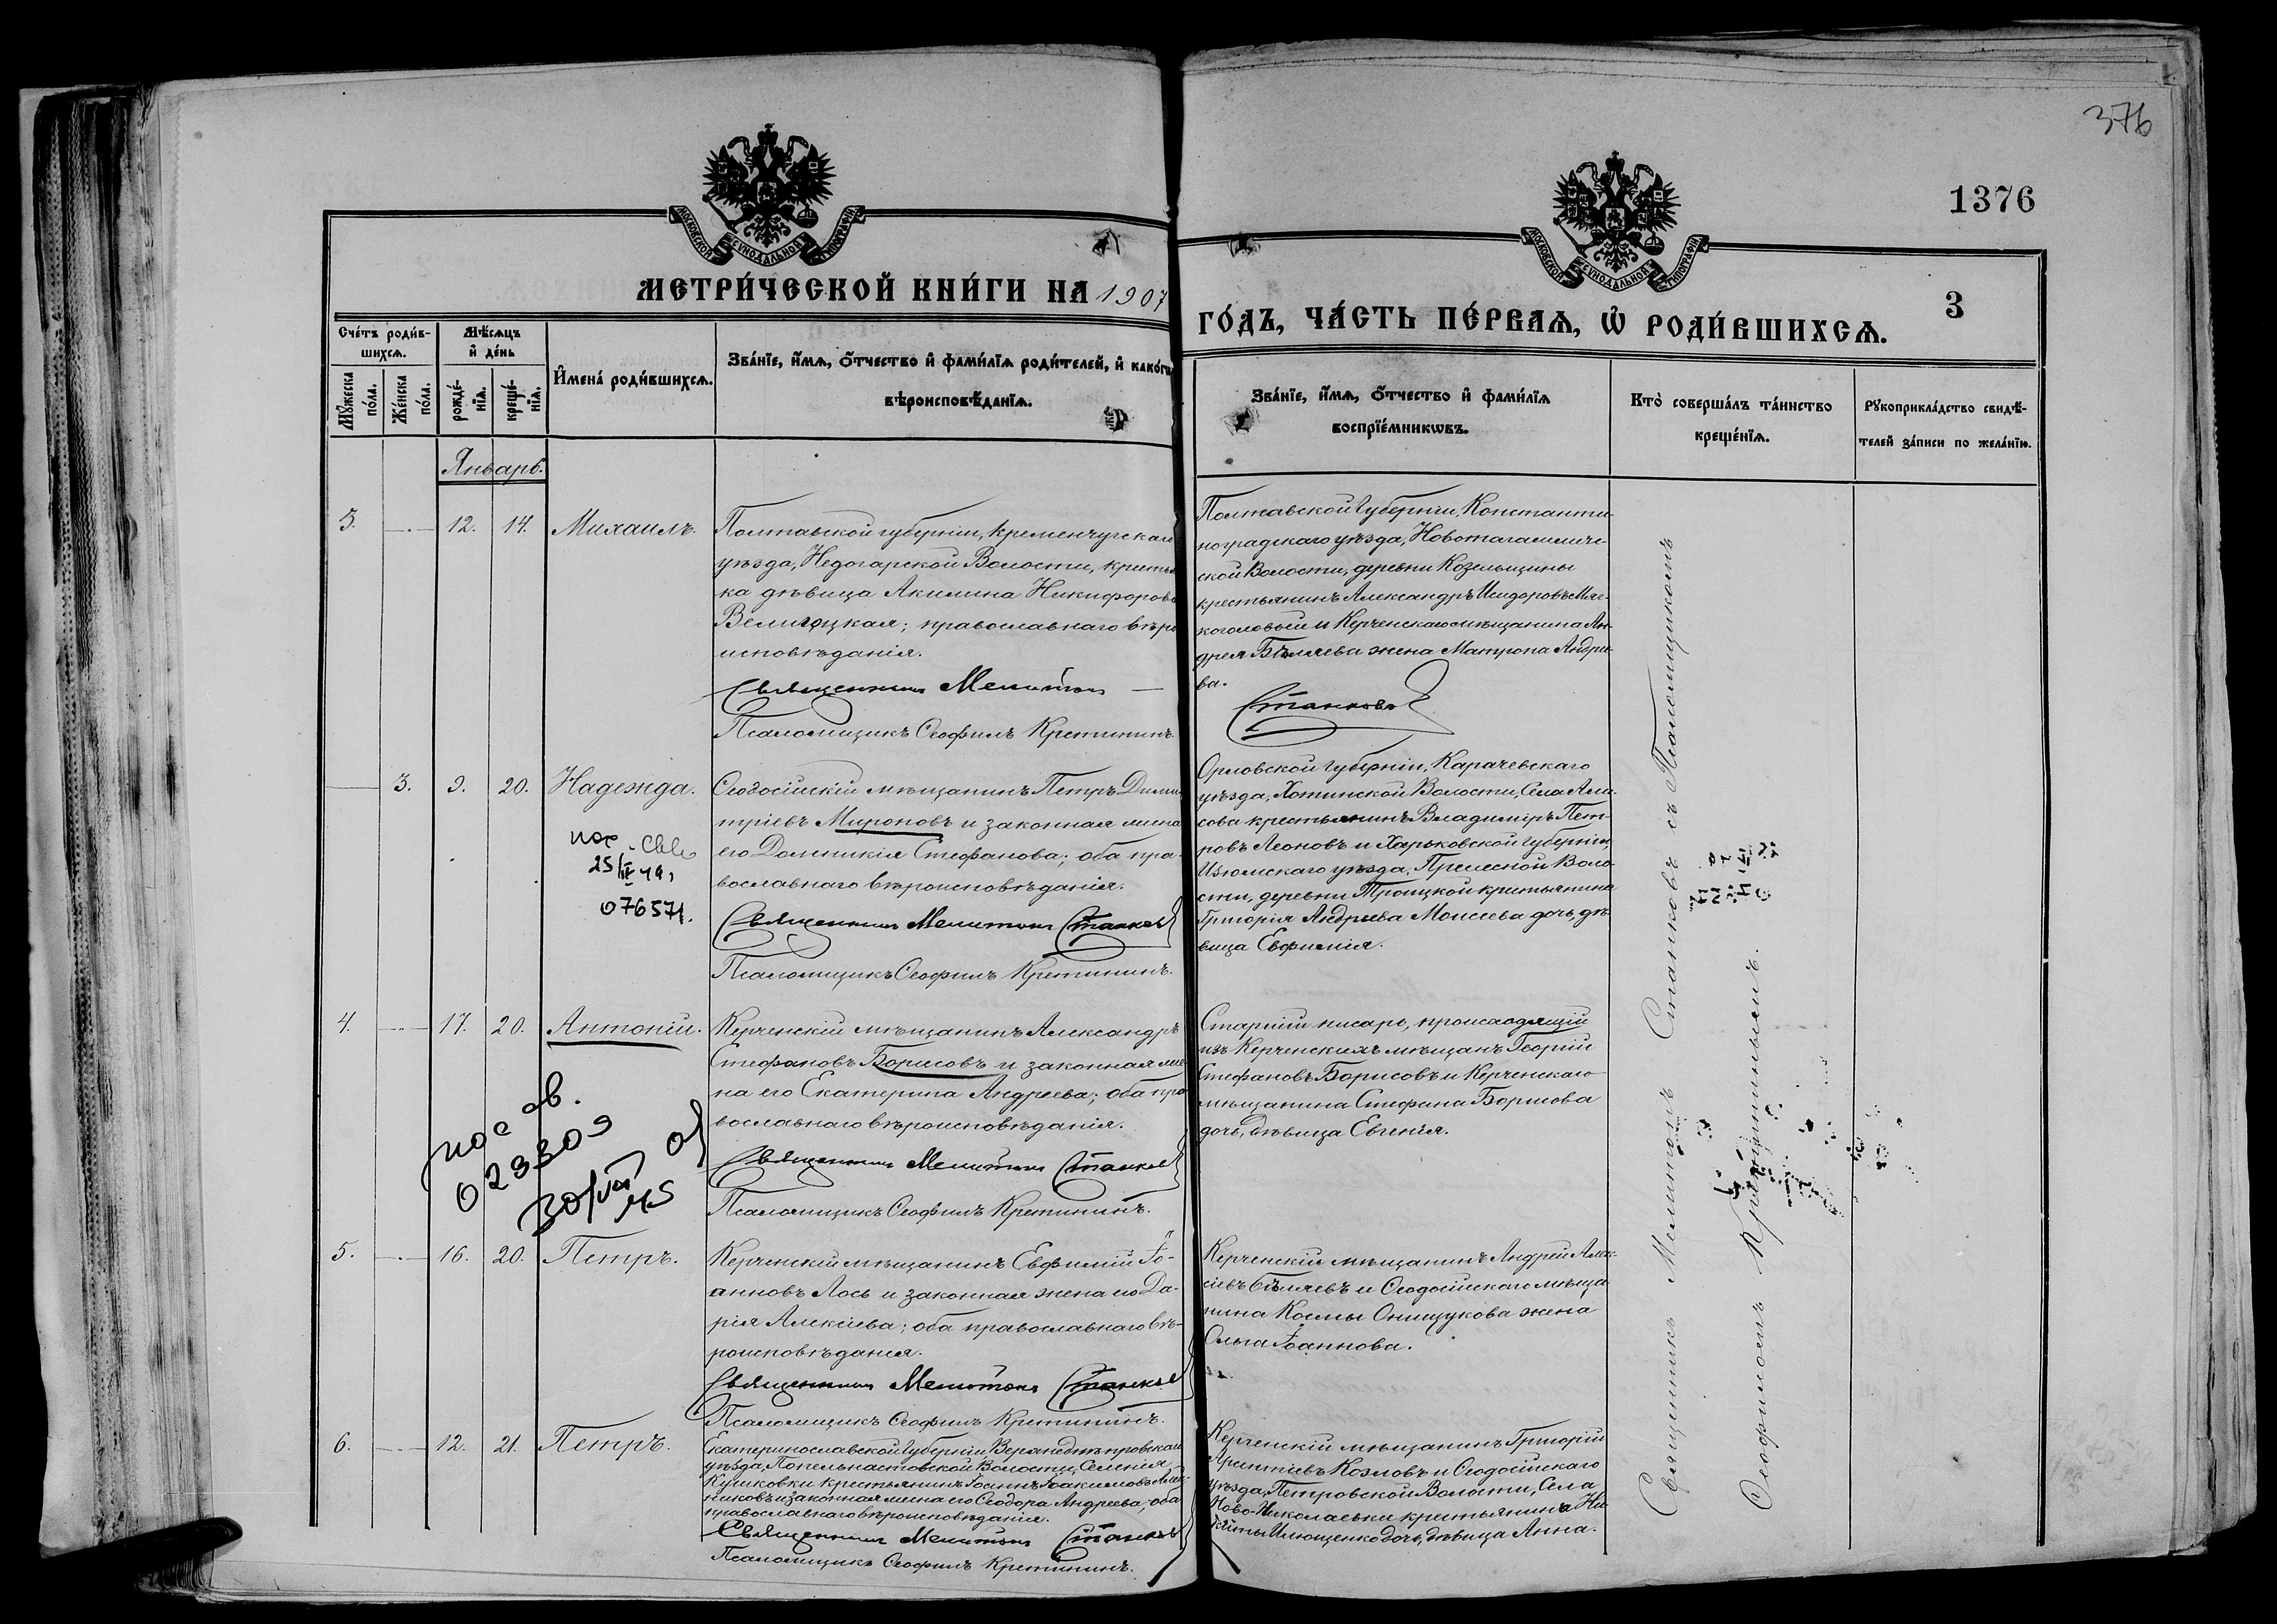 376
1376
3
МОСКОВСКОЙ СѴНОДАЛЬНОЙ ТИПОГРАФІИ
МОСКОВСКОЙ СѴНОДАЛЬНОЙ ТИПОГРАФІИ
МЕТРИ́ЧЕСКОЙ КНИ́ГИ НА 1907
ГО́ДЪ, ЧА́СТЬ ПЕ́РВАѦ, Ѡ҆ РОДИ́ВШИХСѦ.
Сче́тъ роди́в-
шихсѧ.
Мꙋ́жеска
по́ла.
Же́нска
по́ла.
Мѣ́сѧцъ
и҆ де́нь
рожде́-
нїѧ.
креще́-
нїѧ.
И҆мена̀ роди́вшихсѧ.
Зва́нїе, и҆́мѧ, ѻ҆́тчество и҆ фами́лїѧ роди́телей, и҆ како́гѡ
вѣроисповѣ́данїѧ.
Зва́нїе, и҆́мѧ, ѻ҆́тчество и҆ фами́лїѧ
воспрїе́мникѡвъ.
Кто̀ соверша́лъ та́инство
креще́нїѧ.
Рꙋкоприкла́дство свидѣ́-
телей за́писи по жела́нїю.
Январь.
3. — 12. 14. Михаилъ.
Полтавской губерніи, Кременчугскаго
уѣзда, Недогарской Волости, крестьян
ка дѣвица Акилина Никифорова
Велигоцкая; православнаго вѣро
исповѣданія.
Священникъ Мелитонъ —
Псаломщикъ Ѳеофилъ Кретининъ.
Полтавской Губерніи, Константи-
ноградскаго уѣзда, Новотагамлыч-
ской Волости, деревни Козельщины
крестьянинъ Александръ Исидоровъ Мяг-
коголовый и Керченскаго мѣщанина Ан-
дрея Бѣляева жена Матрона Андрее-
ва.
Станковъ
— 3. 9. 20. Надежда.
пос. свв
25/II 49,
076571.
Ѳеодосійскій мѣщанинъ Петръ Дими-
тріевъ Мироновъ и законная жена
его Домникія Стефанова; оба пра-
вославнаго вѣроисповѣданія.
Священникъ Мелитонъ Станковъ
Псаломщикъ Ѳеофилъ Кретининъ.
Орловской Губерніи, Карачевскаго
уѣзда, Хотинской Волости, Села Али-
сова крестьянинъ Владиміръ Пет-
ровъ Леоновъ и Харьковской Губерніи,
Изюмскаго уѣзда, Прелесной Воло-
сти, деревни Троицкой крестьянина
Григорія Андреева Моисеева дочь, дѣ-
вица Евфимія.
4. — 17. 20. Антоній.
023309
Керченскій мѣщанинъ Александръ
Стефановъ Борисовъ и законная же-
на его Екатерина Андреева; оба пра-
вославнаго вѣроисповѣданія.
Священникъ Мелитонъ Станковъ
Псаломщикъ Ѳеофилъ Кретининъ.
Старшій писарь, происходящій
изъ Керченскихъ мѣщанъ Георгій
Стефановъ Борисовъ и Керченскаго
мѣщанина Стефана Борисова
дочь, дѣвица Евгенія.
5. — 16. 20. Петръ.
Керченскій мѣщанинъ Евфимій Іо-
анновъ Лось и законная жена его Да-
рія Алексіева; оба православнаго вѣ-
роисповѣданія.
Священникъ Мелитонъ Станковъ
Псаломщикъ Ѳеофилъ Кретининъ.
Керченскій мѣщанинъ Андрей Алек-
сіевъ Бѣляевъ и Ѳеодосійскаго мѣща-
нина Космы Онищукова жена
Ольга Іоаннова.
6. — 12. 21. Петръ.
Екатеринославской Губерніи Верхнеднѣпровскаго
уѣзда, Попельнастовской Волости, Селенія
Куликовки крестьянинъ Іосифъ Іоакимовъ
и законная жена его Ѳеодора Андреева; оба
православнаго вѣроисповѣданія.
Священникъ Мелитонъ Станковъ
Псаломщикъ Ѳеофилъ Кретининъ.
Керченскій мѣщанинъ Григорій
Козловъ и Ѳеодосійскаго
уѣзда, Петровской Волости, Села
Ново-Николаевки крестьянина Ни-
киты Илющенко дочь, дѣвица Анна.
Священникъ Мелитонъ Станковъ съ Псаломщикомъ
Ѳеофиломъ Кретининымъ.